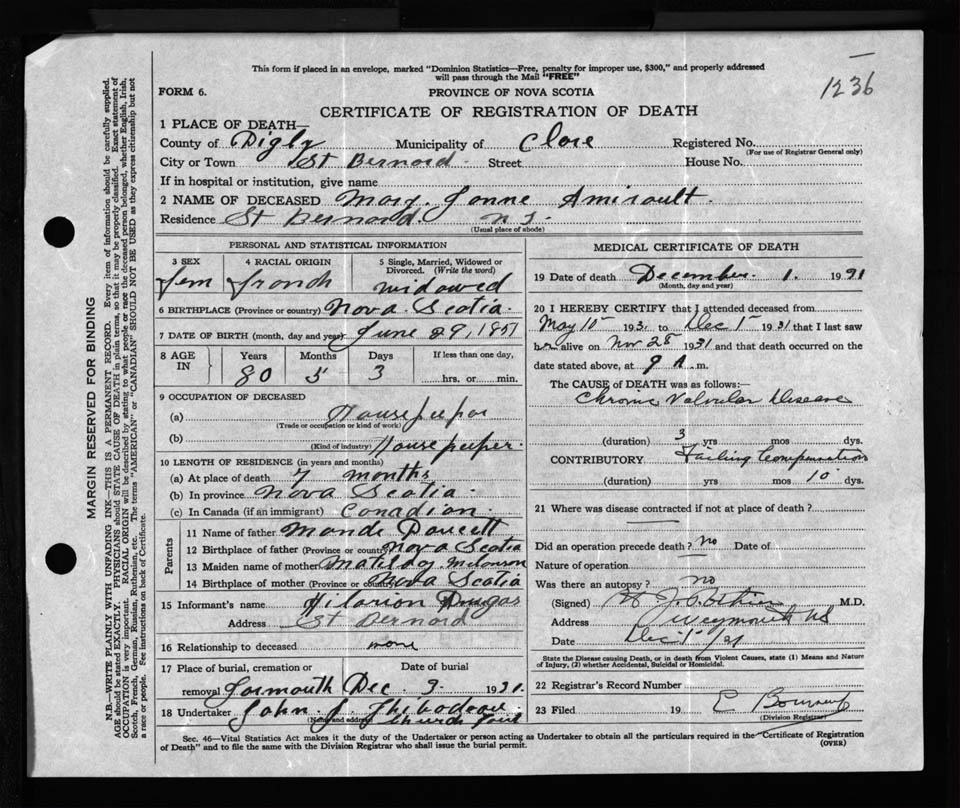 This form if placed in an envelope, marked "Dominion Statistics—Free, penalty for improper use, $300," and properly addressed
will pass through the Mail "FREE"
1236
FORM 6.
PROVINCE OF NOVA SCOTIA
CERTIFICATE OF REGISTRATION OF DEATH
1 PLACE OF DEATH—
County of Digby Municipality of Clare Registered No.
(For use of Registrar General only)
City or Town St Bernard Street House No.
If in hospital or institution, give name
2 NAME OF DECEASED Mary Amirault
Residence St Bernard N S
(Usual place of abode)
PERSONAL AND STATISTICAL INFORMATION
3 SEX 4 RACIAL ORIGIN 5 Single, Married, Widowed or
Divorced. (Write the word)
fem french widowed
6 BIRTHPLACE (Province or country) Nova Scotia
7 DATE OF BIRTH (month, day and year) June 29, 1851
8 AGE IN Years Months Days If less than one day,
80 5 3 hrs. or min.
9 OCCUPATION OF DECEASED
(a) Housekeeper
(Trade or occupation or kind of work)
(b) Housekeeper
(Kind of industry)
10 LENGTH OF RESIDENCE (in years and months)
(a) At place of death 7 months
(b) In province Nova Scotia
(c) In Canada (if an immigrant) Canadian
Parents
11 Name of father Mande Doucett
12 Birthplace of father (Province or country) Nova Scotia
13 Maiden name of mother
14 Birthplace of mother (Province or country) Nova Scotia
15 Informant's name Hilarion Dugas
Address St Bernard
16 Relationship to deceased none
17 Place of burial, cremation or Date of burial
removal Yarmouth Dec. 3. 1931.
18 Undertaker John J. Thibodeau
(Name and address) Church Point
MEDICAL CERTIFICATE OF DEATH
19 Date of death December 1. 1931
(Month, day and year)
20 I HEREBY CERTIFY that I attended deceased from
May 10 1931 to Dec 1 1931 that I last saw
her alive on Nov 28 1931 and that death occurred on the
date stated above, at 9 A. m.
The CAUSE OF DEATH was as follows:—
Chronic Valvular Disease
(duration) 3 yrs mos dys.
CONTRIBUTORY Failing Compensation
(duration) yrs mos 10 dys.
21 Where was disease contracted if not at place of death?
Did an operation precede death? no Date of
Nature of operation
Was there an autopsy? no
(Signed) M.D.
Address Weymouth NS
Date Dec 1/31
State the Disease causing Death, or in death from Violent Causes, state (1) Means and Nature
of Injury, (2) whether Accidental, Suicidal or Homicidal.
22 Registrar's Record Number
23 Filed 19
(Division Registrar)
Sec. 46—Vital Statistics Act makes it the duty of the Undertaker or person acting as Undertaker to obtain all the particulars required in the "Certificate of Registration
of Death" and to file the same with the Division Registrar who shall issue the burial permit.
(OVER)
MARGIN RESERVED FOR BINDING
N.B.—WRITE PLAINLY WITH UNFADING INK—THIS IS A PERMANENT RECORD. Every item of information should be carefully supplied.
AGE should be stated EXACTLY. PHYSICIANS should STATE CAUSE OF DEATH in plain terms, so that it may be properly classified. Exact statement of
OCCUPATION is very important. RACIAL ORIGIN will be described by stating to what people or race the deceased person belonged, whether English, Irish,
Scotch, French, German, Russian, Ruthenian, etc. The terms "AMERICAN" or "CANADIAN" SHOULD NOT BE USED as they express citizenship but not
a race or people. See instructions on back of Certificate.